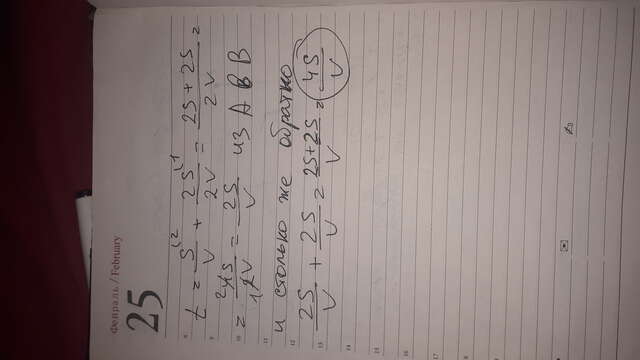 Февраль / February
25
8
t = S/V + 2S/2V = 2S + 2S/2V =
9
10
= 4S/2V = 2S/V из А в В
11
и столько же обратно
12
13
2S/V + 2S/V = 2S+2S/V = 4S/V
14
15
16
17
18